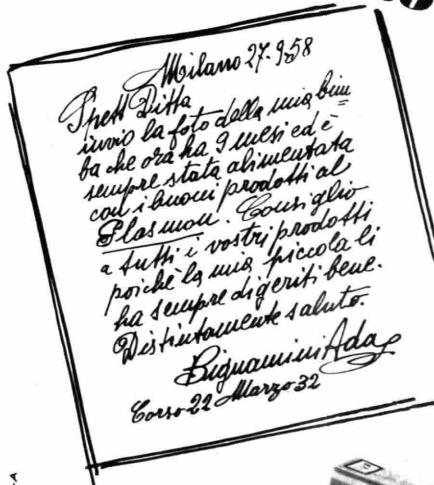 Milano 27.9.58
Spett Ditta
invio la foto della mia bim=
ba che ora ha 9 mesi ed è
sempre stata alimentata
con i buoni prodotti al
Plasmon. Consiglio
a tutti i vostri prodotti
poichè la mia piccola li
ha sempre digeriti bene.
Distintamente saluto.
Bignamini Ada
Corso 22 Marzo 32